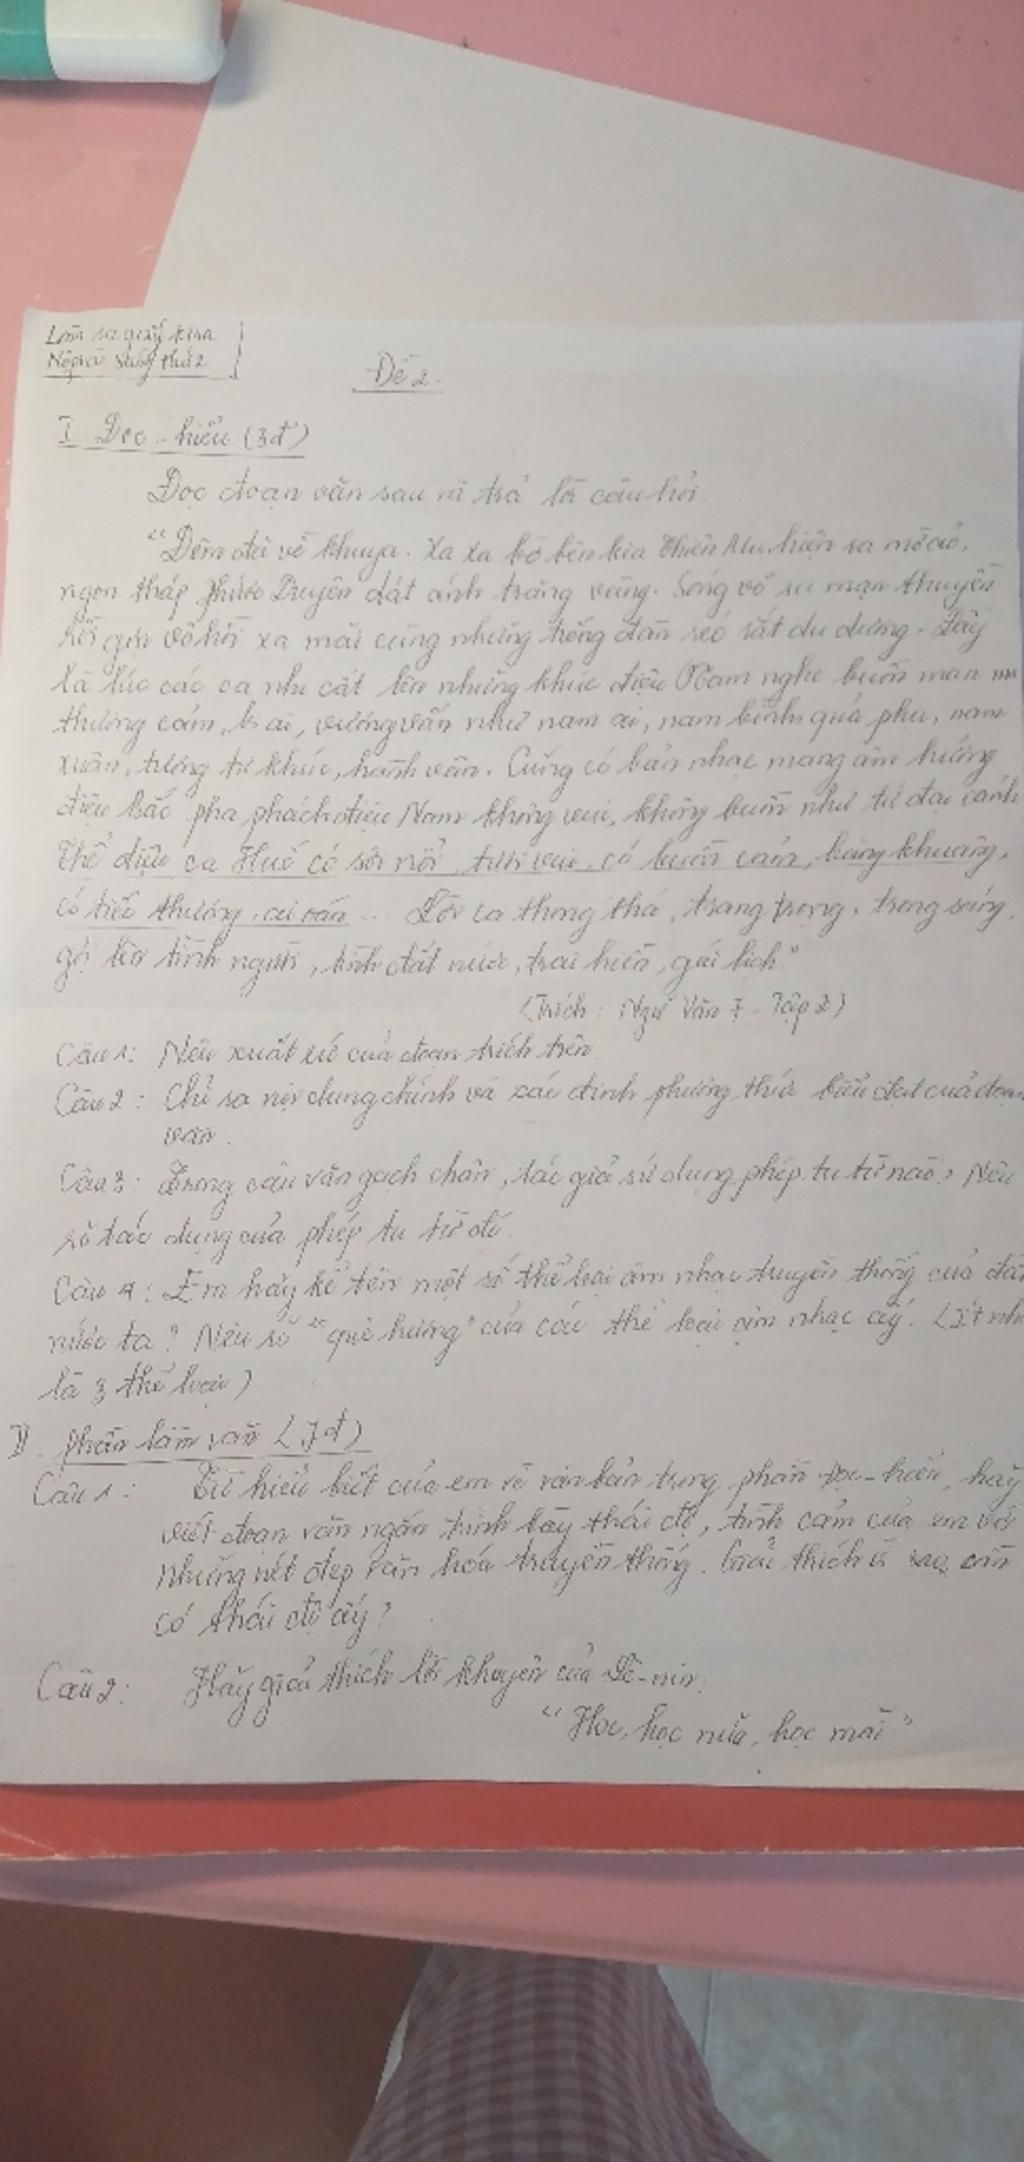 Làm ra giấy kiểm
Nộp vào sáng thứ 2
Đề 2.
I. Đọc - hiểu (3đ)
Đọc đoạn văn sau và trả lời câu hỏi
"Đêm đã về khuya. Xa xa bờ bên kia Thiên Mụ hiện ra mờ ảo,
ngọn tháp Phước Duyên dát ánh trăng vàng. Sóng vỗ ru mạn thuyền
rồi gợn vô hồi xa mãi cùng những tiếng đàn réo rắt du dương. Đây
là lúc các ca nhi cất lên những khúc điệu Nam nghe buồn man mác
thương cảm, bi ai, vương vấn như nam ai, nam bình, quả phụ, nam
xuân, tương tư khúc, hành vân. Cũng có bản nhạc mang âm hưởng
điệu bắc pha phách điệu Nam không vui, không buồn như tứ đại cảnh
Thể điệu ca Huế có sôi nổi, tươi vui, có buồn cảm, bâng khuâng,
có tiếc thương, ai oán ... Lời ca thong thả, trang trọng, trong sáng,
gợi lên tình người, tình đất nước, trai hiền, gái lịch."
(Trích: Ngữ Văn 7 - Tập 2)
Câu 1: Nêu xuất xứ của đoạn trích trên
Câu 2: Chỉ ra nội dung chính và xác định phương thức biểu đạt của đoạn
văn.
Câu 3: Trong câu văn gạch chân, tác giả sử dụng phép tu từ nào? Nêu
rõ tác dụng của phép tu từ đó.
Câu 4: Em hãy kể tên một số thể loại âm nhạc truyền thống của đất
nước ta? Nêu rõ "quê hương" của các thể loại âm nhạc ấy. (Ít nhất
là 3 thể loại)
II. Phần làm văn (7đ)
Câu 1: Từ hiểu biết của em về văn bản trong phần đọc - hiểu, hãy
viết đoạn văn ngắn trình bày thái độ, tình cảm của em với
những nét đẹp văn hóa truyền thống. Giải thích vì sao em
có thái độ ấy?
Câu 2: Hãy giải thích lời khuyên của Lê-nin:
"Học, học nữa, học mãi"